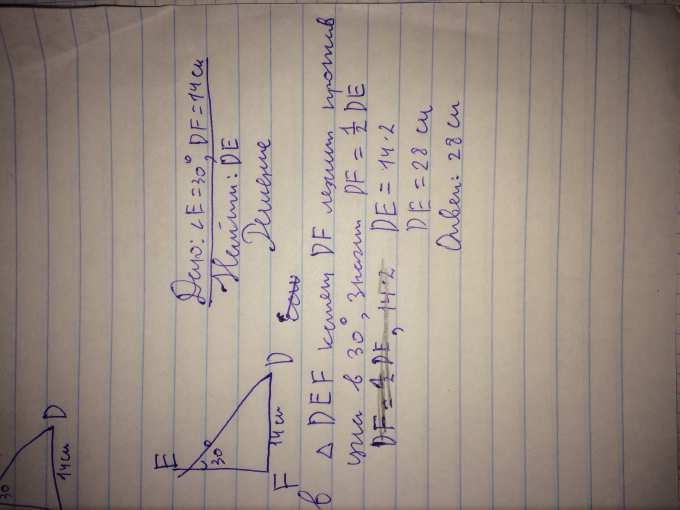 Дано: ∠E=30°, DF=14см
Найти: DE
Решение
E
30°
F
14см
D
В △ DEF катет DF лежит против
угла в 30°, значит DF = 1/2 DE
DE = 14·2
DE = 28 см
Ответ: 28 см
30
14см
D